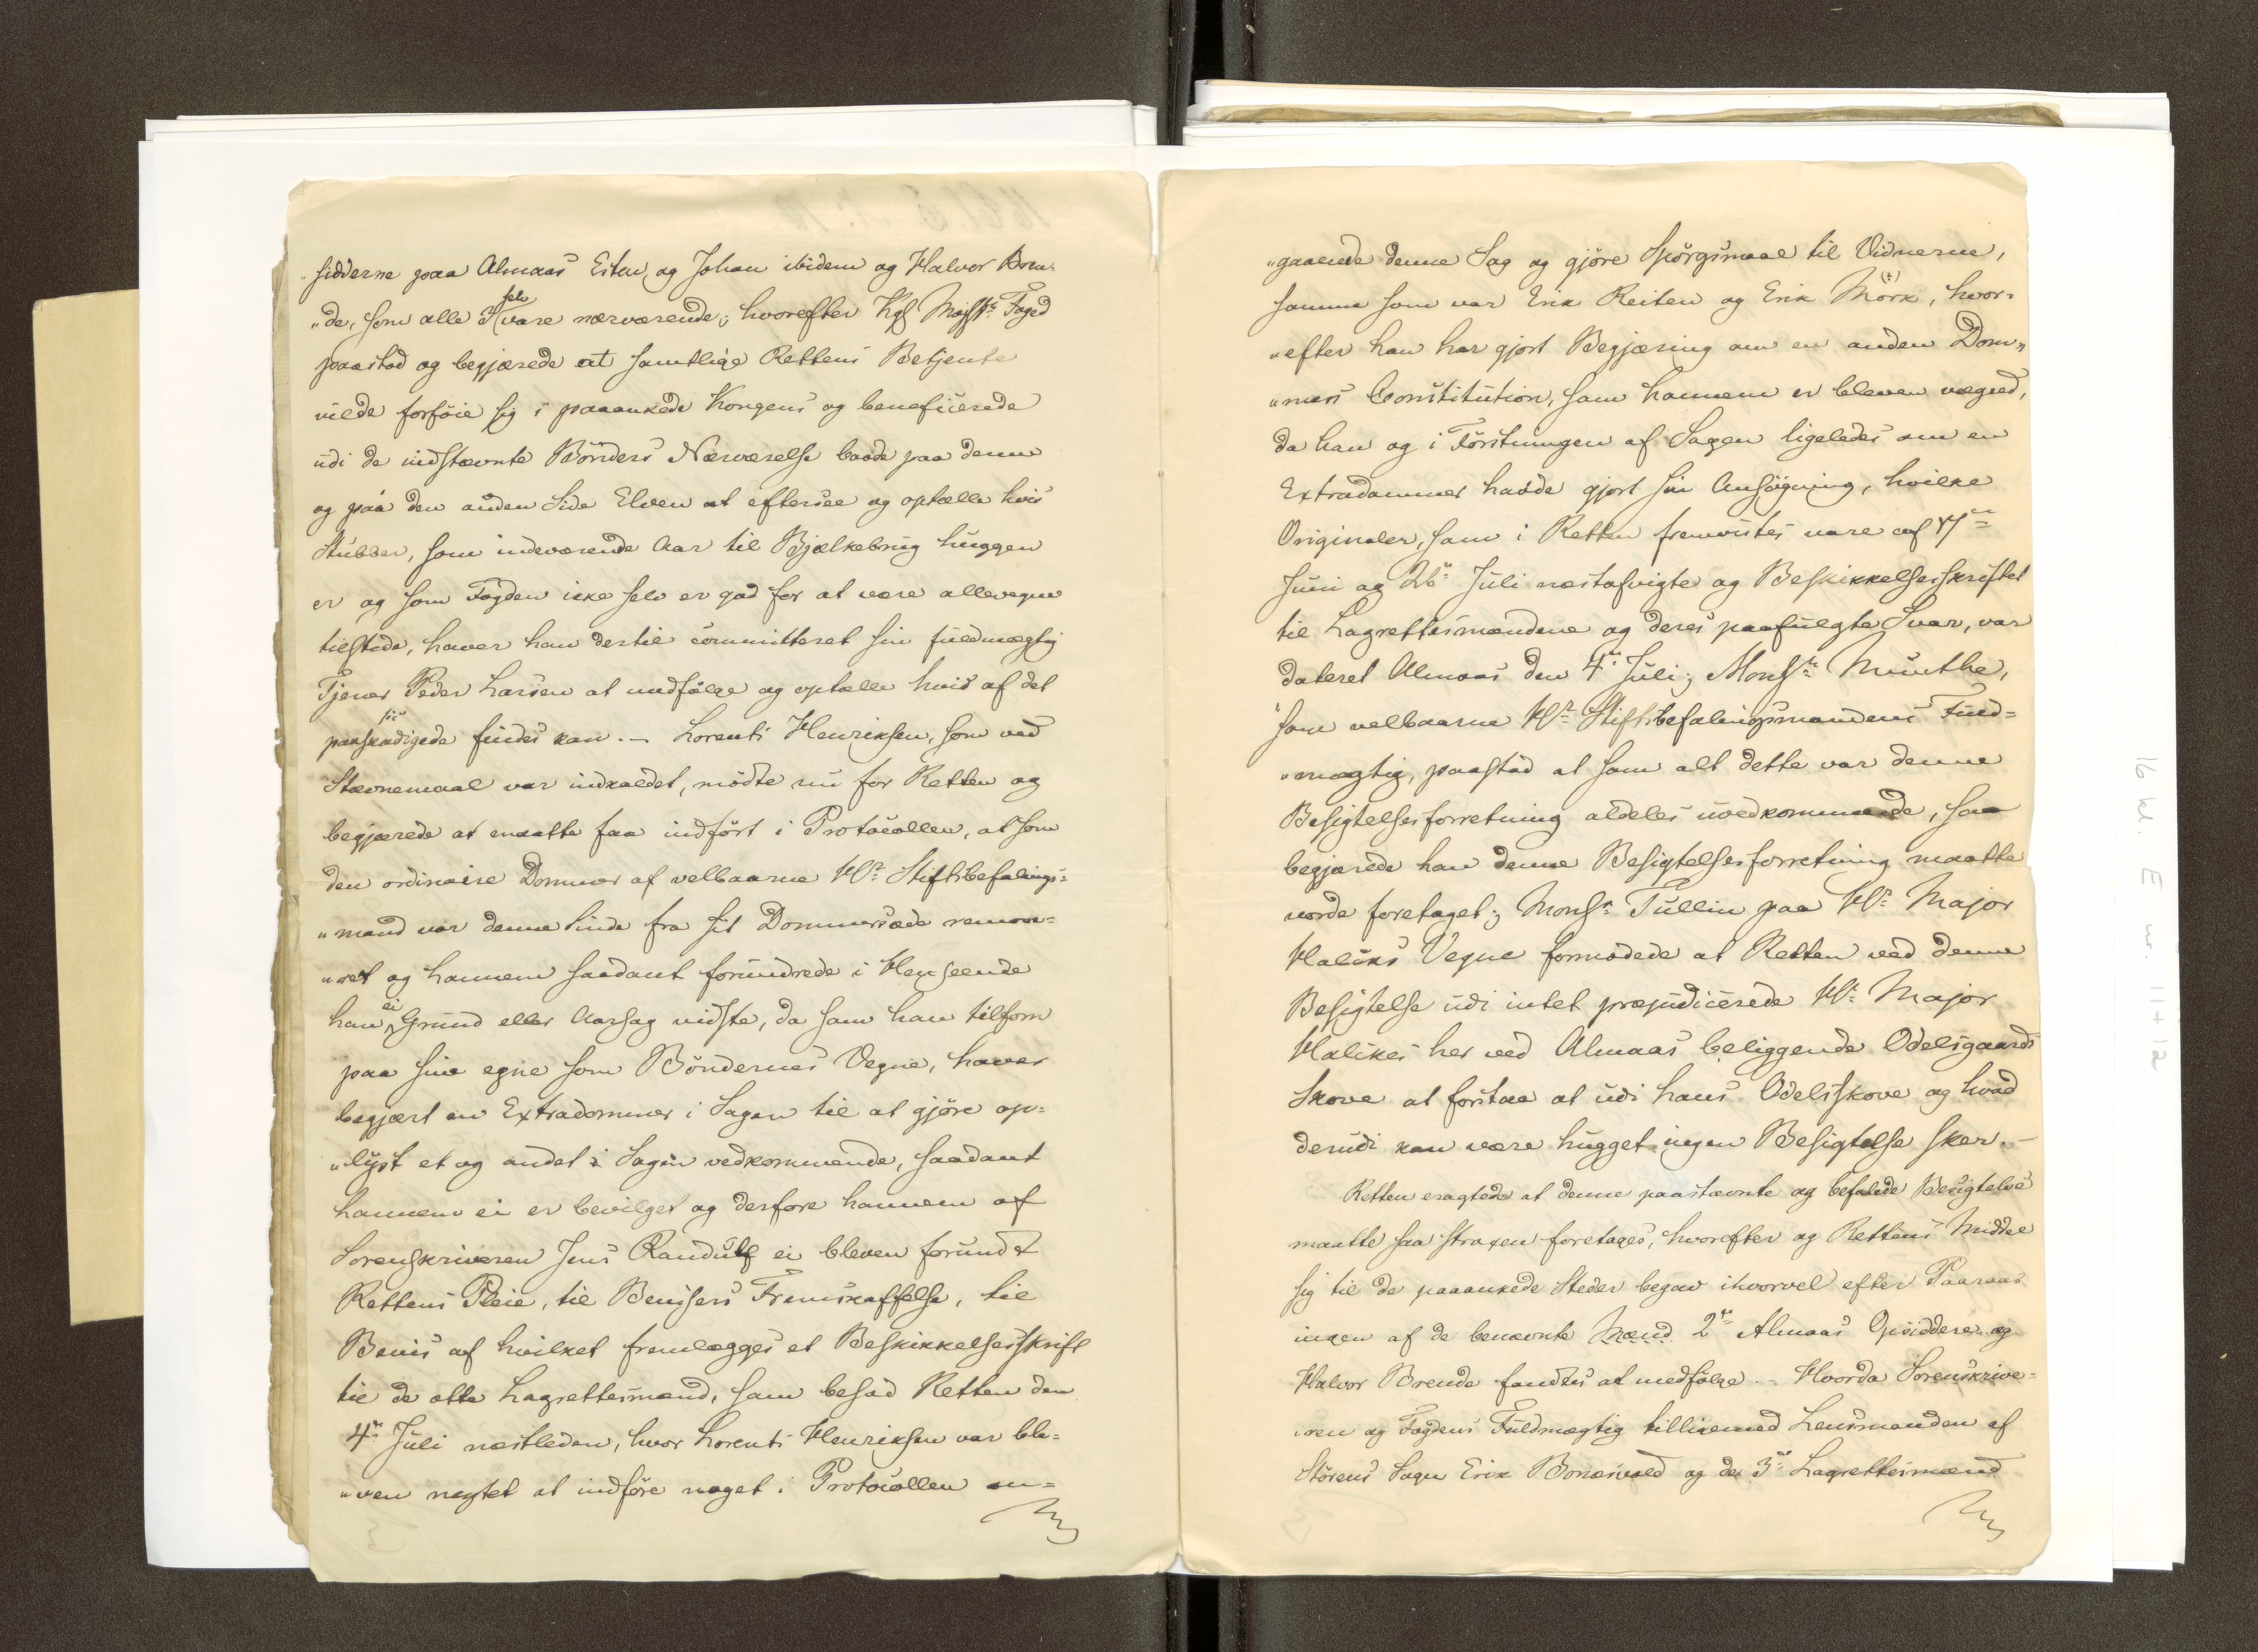 "sidderne paa Almaas Esten og Johan ibidem og Halvor Bren-
"de, som alle selv vare nærværende; hvorefter Kgl Majsts Foged
paastod og begjærede at samtlige Rettens Betjente
vilde forföie sig i paaankede Kongens og beneficerede
udi de indstævnte Bönders Nærværelse baade paa denne
og paa den anden Side Elven at eftersee og optælle hvis
Stubber, som indeværende Aar til Bjælkebrug huggen
er og som Fogden ikke selv er god for at være allevegne
tilstede, haver han dertil committeret sin fuldmægtig
Tjener Peder Larsen at medfölge og optælle hvis af det
paaskadigede (sic) findes kan. — Lorents Henriksen, som ved
Stævnemaal var indkaldet, mödte nu for Retten og
begjærede at maatte faa indfört i Protocollen, at som
den ordinaire Dommer af velbaarne Hr. Stiftsbefalings=
"mand var denne Sinde fra sit Dommersæde remove=
"ret og hannem saadant forundrede i Henseende
han ei Grund eller Aarsag vidste, da som han tilforn
paa sine egne som Böndernes Vegne, haver
begjært en Extradommer i Sagen til at gjöre op=
"lyst et og andet i Sagen vedkommende, saadant
hannem ei er bevilget og derfore hannem af
Sorenskriveren Jens Randulf ei bleven forundt
Rettens Pleie, til Bevisers Fremskaffelse, til
Bevis af hvilket fremlægges et Beskikkelsesskrift
til de otte Lagrettesmænd, som besad Retten den
4de Juli næstleden, hvor Lorents Henriksen var ble=
"ven negtet at indföre noget i Protocollen an=
"gaaende denne Sag og gjöre Spörgsmaal til Vidnerne,
samme som var Erik Reiten og Erik Mörk, hvor=
"efter han har gjort Begjæring om en anden Dom"
"mers Constitution, som hannem er bleven vægred,
da han og i Förstningen af Sagen ligeledes om en
Extradommer havde gjort sin Ansögning, hvilke
Originaler, som i Retten fremvistes vare af 17de
Juni og 26de Juli næstafvigte og Beskikkelsesskriftet
til Lagrettesmændene og deres paafulgte Svar, var
dateret Almaas den 4de Juli; Monsr. Munthe,
som velbaarne Hr. Stiftsbefalingsmandens Fuld=
"mægtig, paastod at som alt dette var denne
Besigtelsesforretning aldeles uvedkommende, saa
begjærede han denne Besigtelsesforretning maatte
vorde foretaget; Monsr. Tullin paa Hr. Major
Haliks Vegne formodede at Retten ved denne
Besigtelse udi intet præjudicerede Hr. Major
Halikes her ved Almaas beliggende Odelsgaards
Skove at forstaa at udi hans Odelsskove og hvad
derudi kan være hugget ingen Besigtelse sker. —
Retten eragtede at denne paastævnte og befalede Besigtelse
maatte saa straxen foretages, hvorefter og Rettens Middel
sig til de paaankede Steder begav ihvorvel efter Paaraab
ingen af de benævnte Mænd 2de Almaas Opsiddere og
Halvor Brende fandtes at medfölge. — Hvorda Sorenskrive=
"ren og Fogdens Fuldmægtig tilligemed Lensmanden af
Störens Sogn Erik Bonesvold og de 3de Lagrettesmænd
16 W. E nr. 11+12